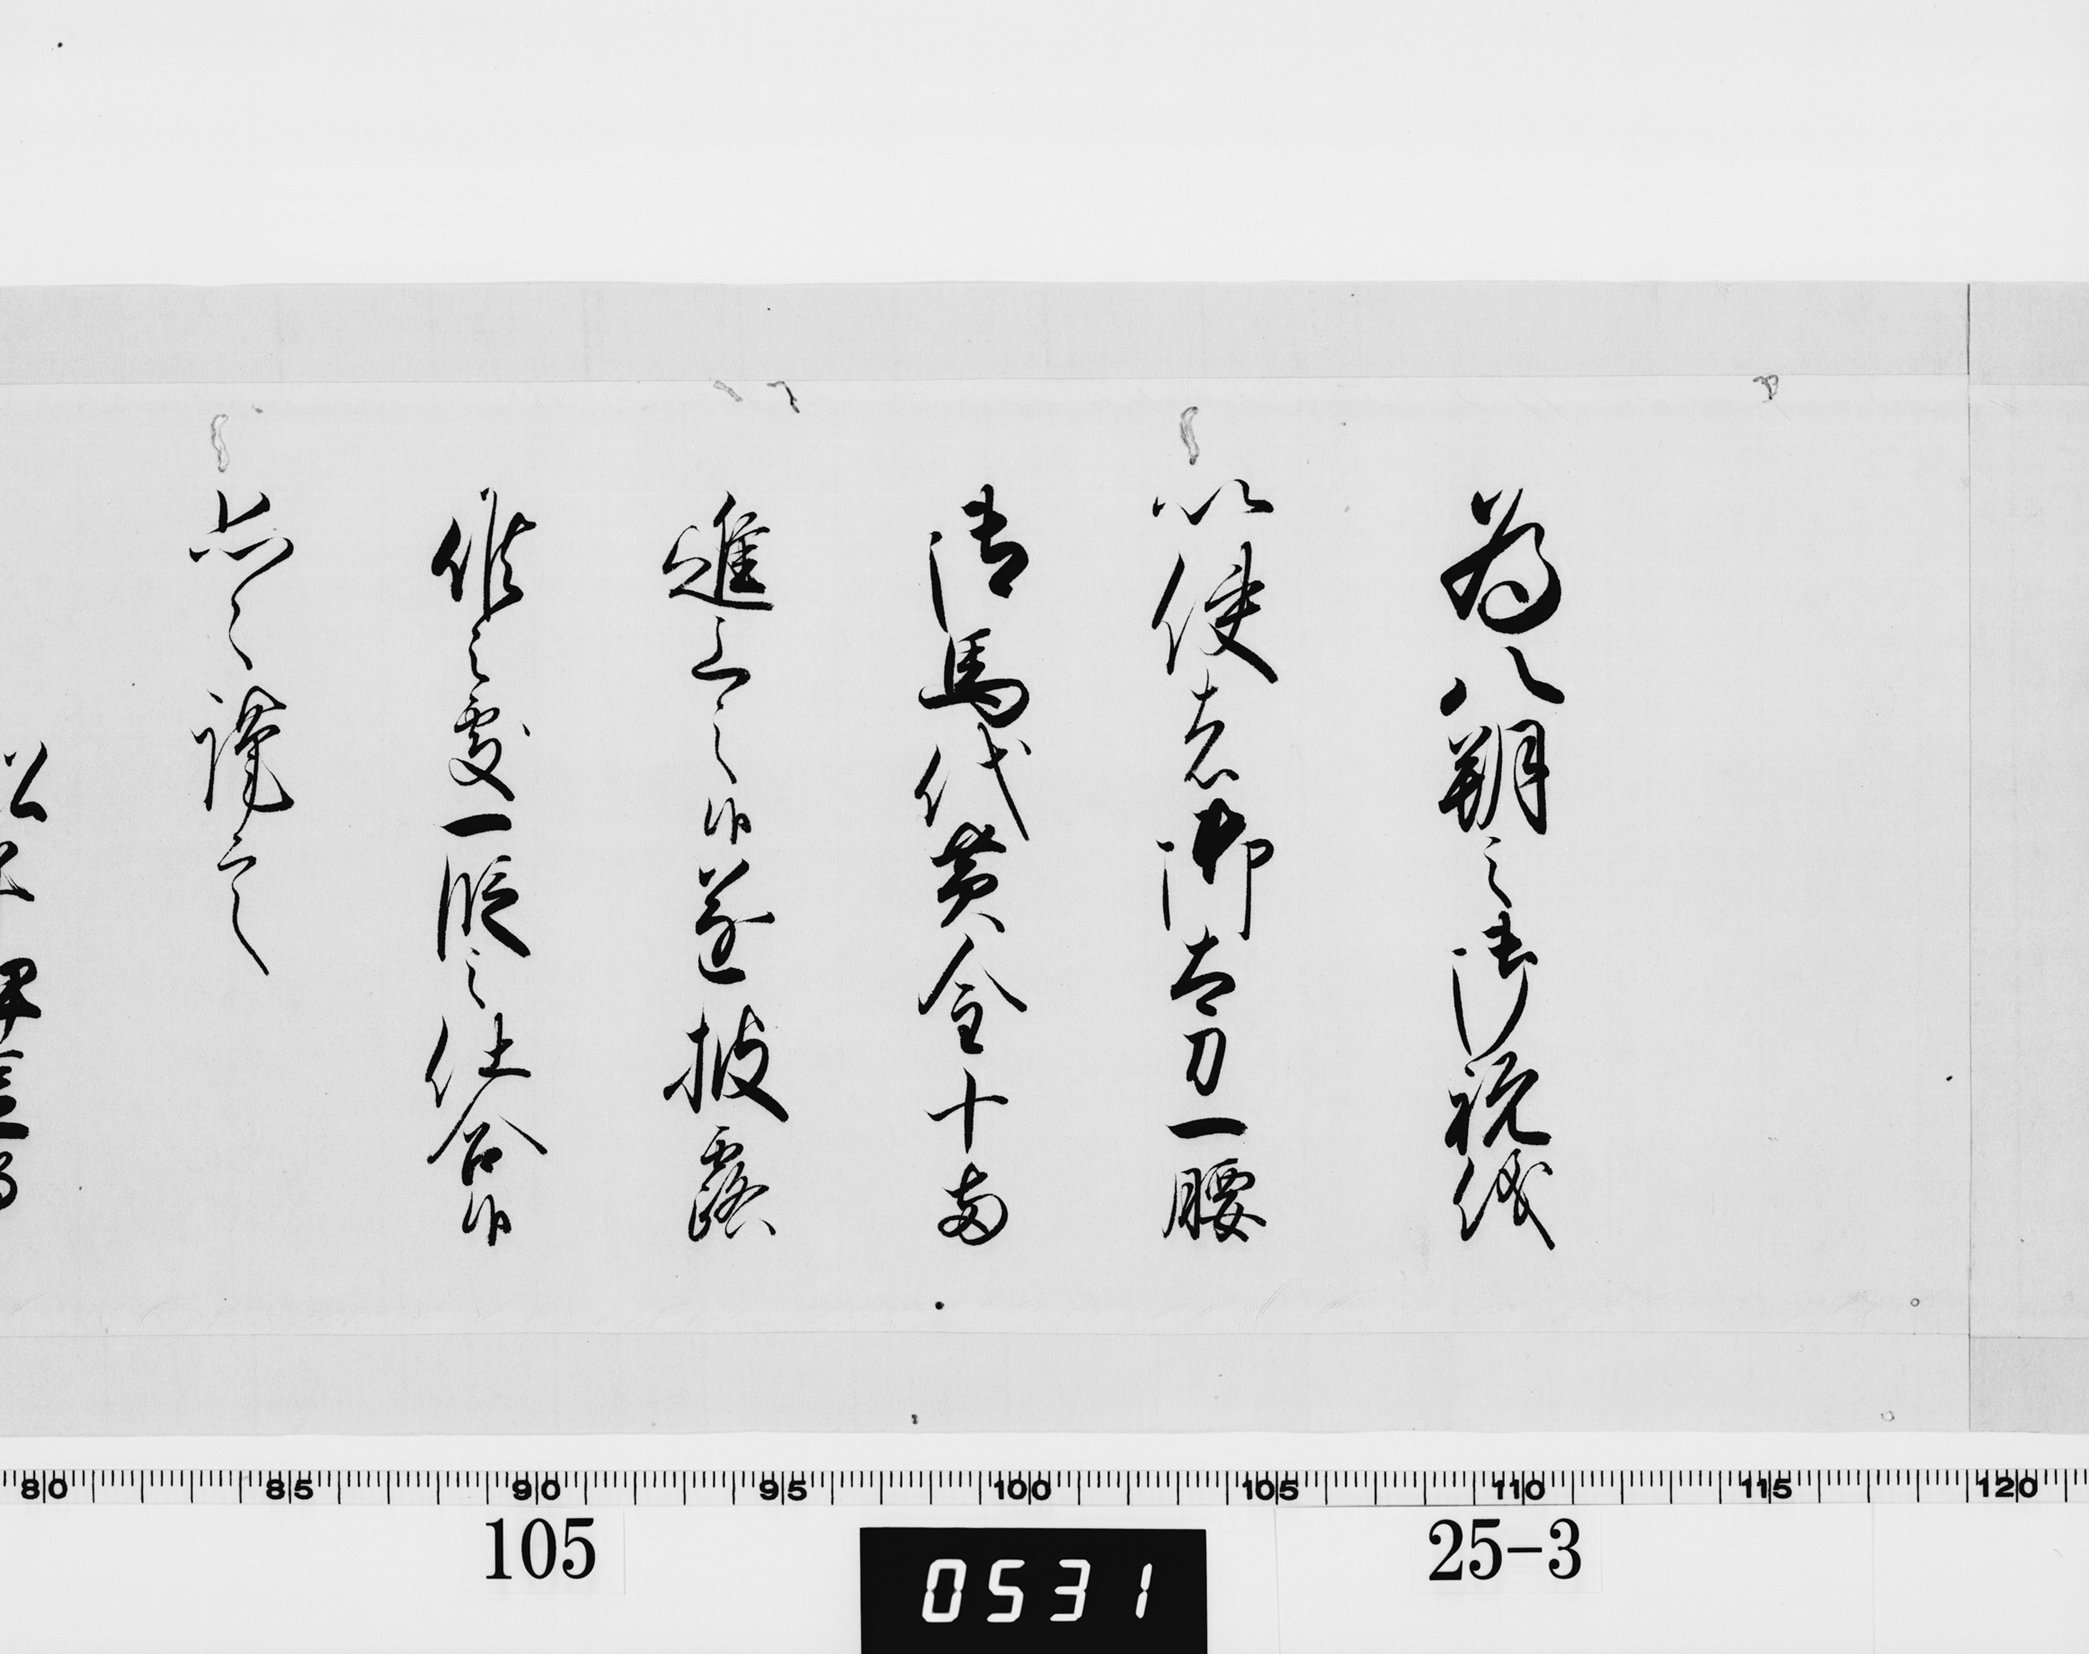 為八朔之御祝儀
以使者御太刀一腰
御馬代黄金十両
進上之候遂披露
候之處一段之仕合候
恐々謹言
松平
80 85 90 95 100 105 110 115 120
105
0531
25-3